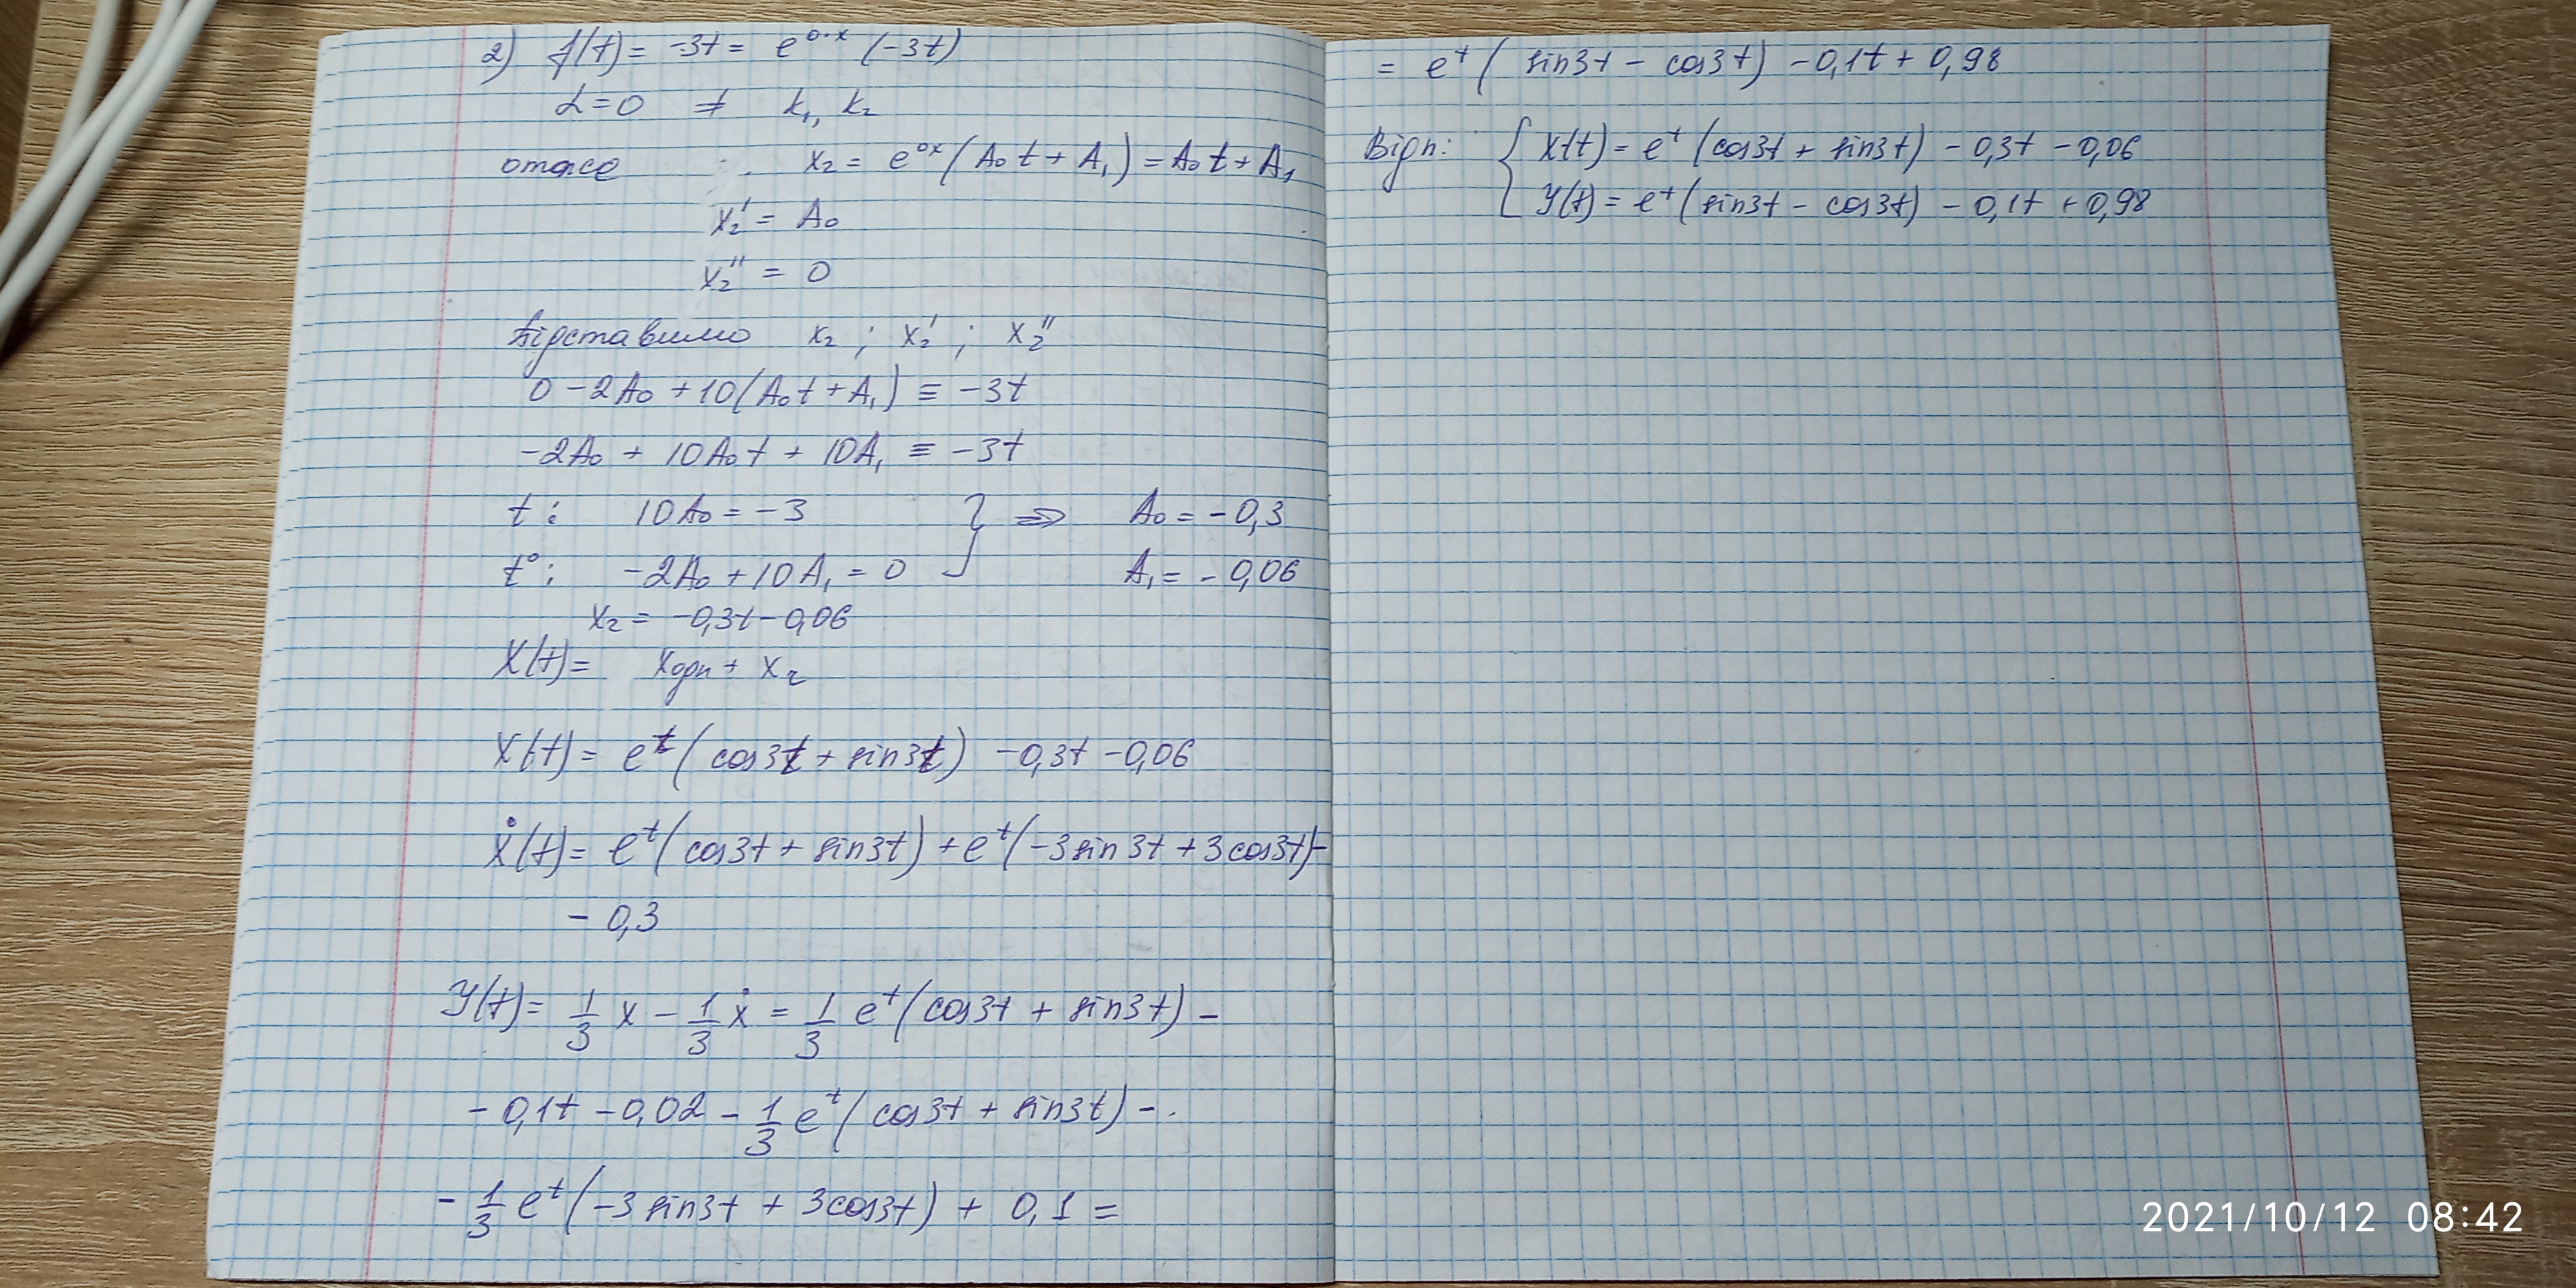 2) f(t) = -3t = e^{0·x} (-3t)
α = 0 ≠ k₁, k₂
отже x₂ = e^{0x} (A₀t + A₁) = A₀t + A₁
x₂' = A₀
x₂'' = 0
Підставимо x₂ ; x₂' ; x₂''
0 - 2A₀ + 10(A₀t + A₁) ≡ -3t
-2A₀ + 10A₀t + 10A₁ ≡ -3t
t : 10A₀ = -3 } ⇒ A₀ = -0,3
t⁰ : -2A₀ + 10A₁ = 0 A₁ = -0,06
x₂ = -0,3t - 0,06
X(t) = xодн + x₂
X(t) = e^t (cos3t + sin3t) - 0,3t - 0,06
ẋ(t) = e^t (cos3t + sin3t) + e^t (-3sin3t + 3cos3t) -
- 0,3
Y(t) = 1/3 x - 1/3 ẋ = 1/3 e^t (cos3t + sin3t) -
- 0,1t - 0,02 - 1/3 e^t (cos3t + sin3t) -
- 1/3 e^t (-3sin3t + 3cos3t) + 0,1 =
= e^t (sin3t - cos3t) - 0,1t + 0,98
Відп: { X(t) = e^t (cos3t + sin3t) - 0,3t - 0,06
Y(t) = e^t (sin3t - cos3t) - 0,1t + 0,98
2021/10/12 08:42